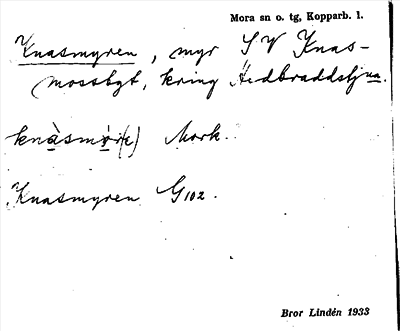 Mora sn o. tg, Kopparb. l.
Knasmyren, myr SV Knas-
mossbgt, kring Hedbraddstjna.
Mork.
Knasmyren G102.
Bror Lindén 1933